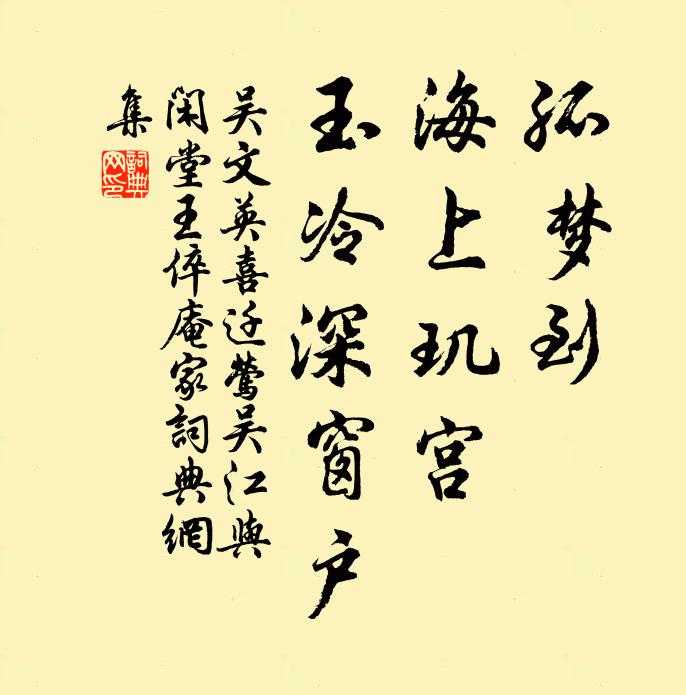 孤梦到
海上玑宫
玉冷深窗户
吴文英喜迁莺吴江與
闲堂王倅庵家詞典網
集
詞典網印